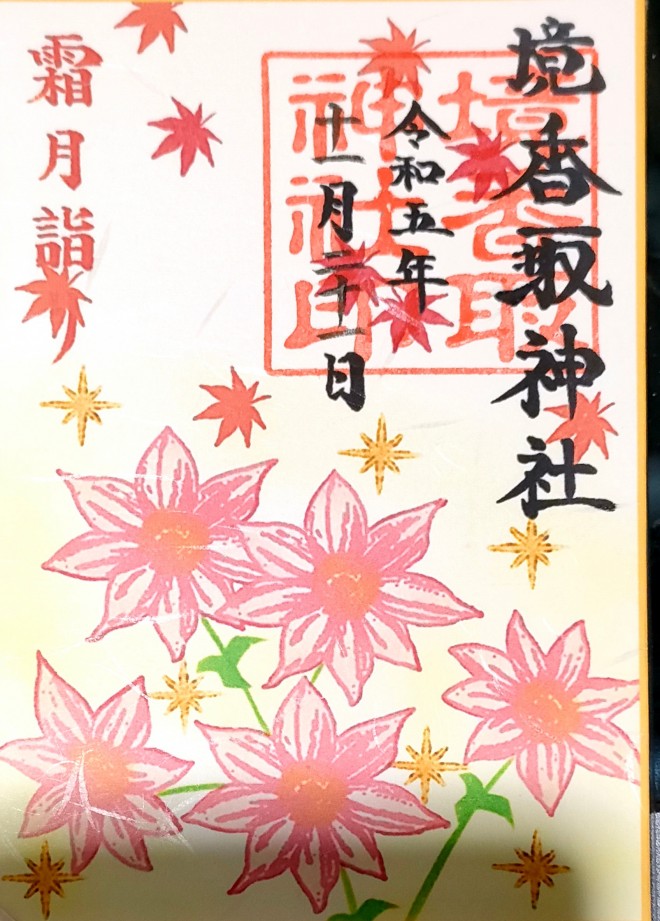 境香取神社
令和五年
十一月二十一日
霜月詣
境香取
神社印